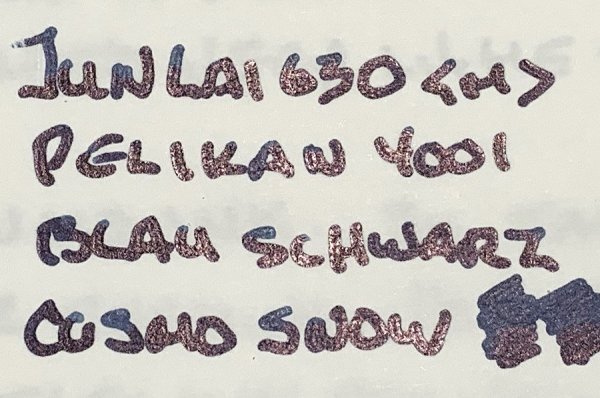 JUNLAI 630 <M>
PELIKAN 4001
BLAU SCHWARZ
COSMO SNOW